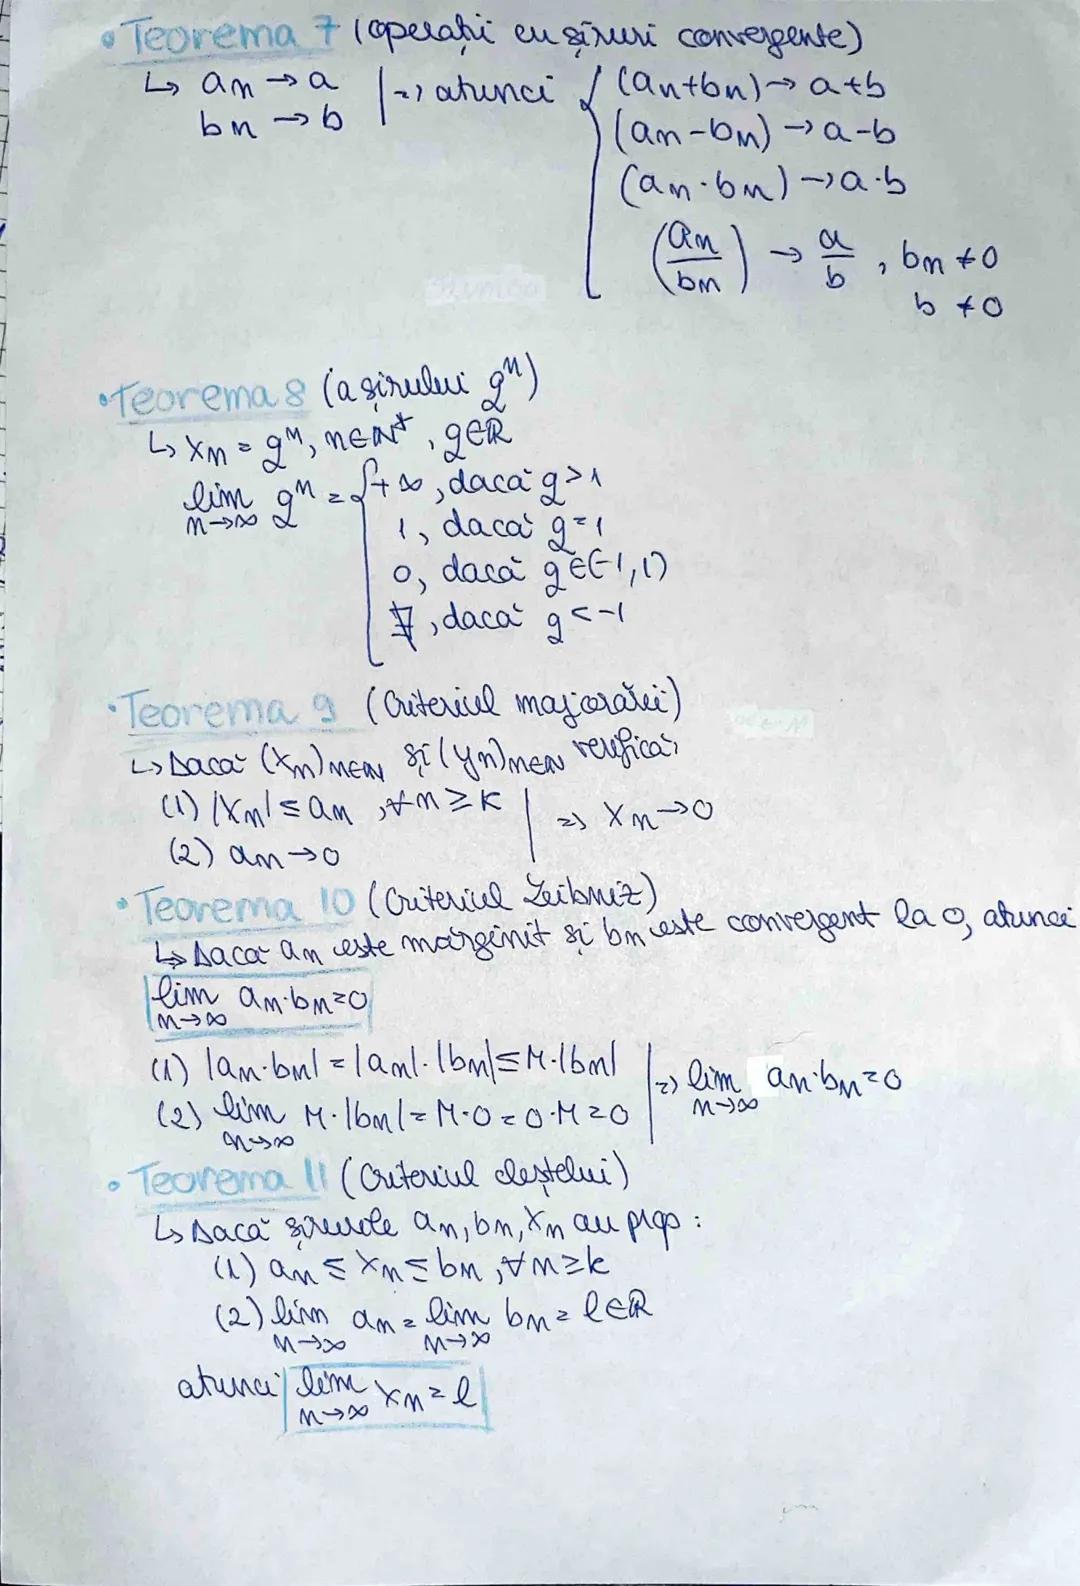 • Teorema 7 (operații cu șiruri convergente)
↳ an → a |=> atunci { (an+bn) → a+b
bn → b
(an-bn) → a-b
(an·bn) → a·b
(an/bn) → a/b , bn ≠0
b ≠0
• Teorema 8 (a șirului q^n)
↳ xn = q^n, n∈N*, q∈R
lim n→∞ q^n = { +∞, dacă q>1
1, dacă q=1
0, dacă q∈(-1,1)
∄, dacă q<-1
• Teorema 9 (Criteriul majorării)
↳ Dacă (xn)n∈N și (yn)n∈N verifică:
(1) |xn| ≤ an, ∀n≥k | => xn→0
(2) an→0
• Teorema 10 (Criteriul Leibniz)
↳ Dacă an este mărginit și bn este convergent la 0, atunci
lim n→∞ an·bn=0
(1) |an·bn| = |an|·|bn| ≤ M·|bn| |=> lim n→∞ an·bn=0
(2) lim n→∞ M·|bn| = M·0 = 0·M = 0
• Teorema 11 (Criteriul cleștelui)
↳ Dacă șirurile an, bn, xn au prop :
(1) an ≤ xn ≤ bn, ∀n≥k
(2) lim n→∞ an = lim n→∞ bn = l∈R
atunci lim n→∞ xn = l